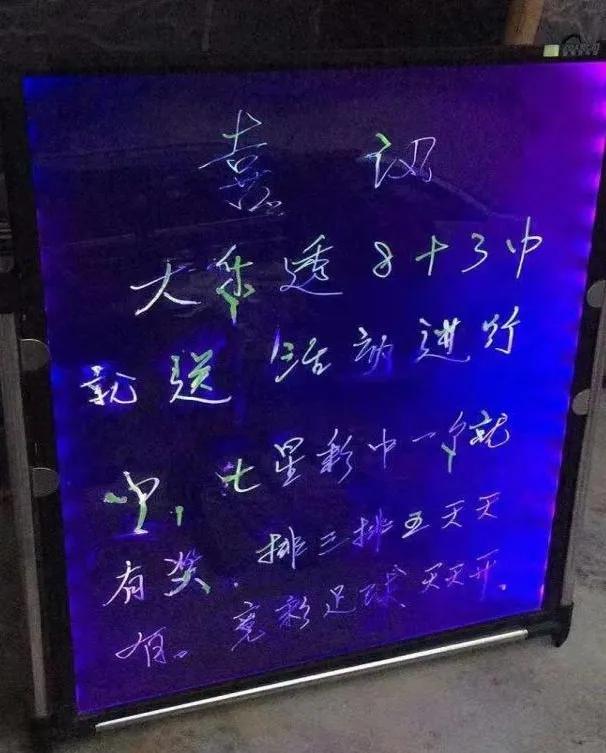 喜讯
大乐透8+3中
就送 活动进行
中，七星彩中一个就
有奖．排三排五天天
有。竞彩足球天天开。